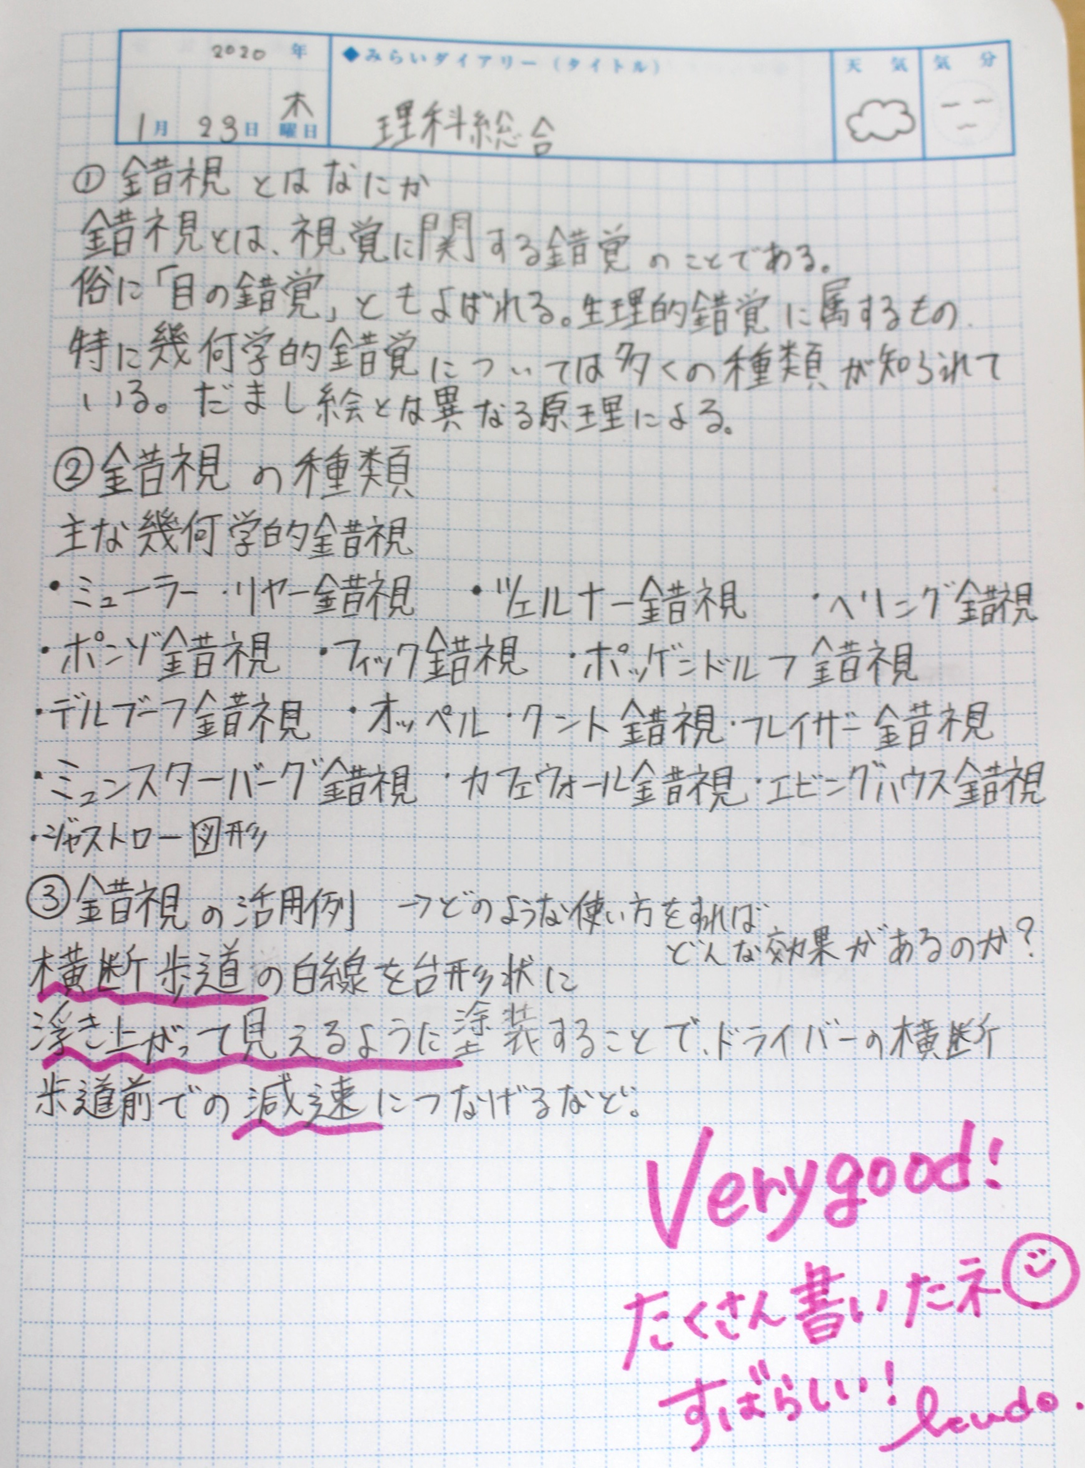 2020 年
1月 23日 木曜日
◆みらいダイアリー(タイトル)
理科総合
天 気
気 分
① 錯視とはなにか
錯視とは、視覚に関する錯覚のことである。
俗に「目の錯覚」ともよばれる。生理的錯覚に属するもの、
特に幾何学的錯覚については多くの種類が知られて
いる。だまし絵とは異なる原理による。
②錯視の種類
主な幾何学的錯視
・ミューラー・リヤー錯視 ・ツェルナー錯視 ・ヘリング錯視
・ポンゾ錯視 ・フィック錯視 ・ポッゲンドルフ錯視
・デルブーフ錯視 ・オッペル・クント錯視・フレイザー錯視
・ミュンスターバーグ錯視 ・カフェウォール錯視・エビングハウス錯視
・ジャストロー図形
③錯視の活用例 →どのような使い方をすれば
どんな効果があるのか?
横断歩道の白線を台形状に
浮き上がって見えるように塗装することで、ドライバーの横断
歩道前での減速につなげるなど。
Very good!
たくさん書いたネ
すばらしい!